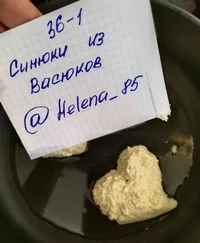 36-1
Синюки из
Васюков
@Helena_85